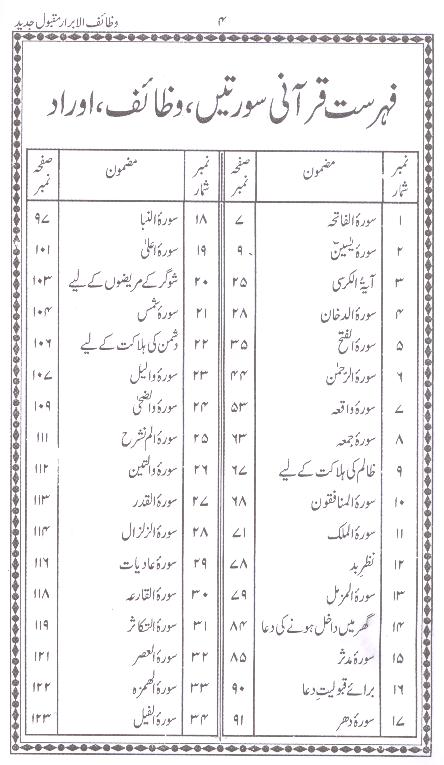 وظائف الابرار مقبول جدید ۴
فہرست قرآنی سورتیں، وظائف، اوراد
نمبر شمار مضمون صفحہ نمبر
۱ سورۃ الفاتحہ ۷
۲ سورۃ یٰسین ۹
۳ آیۃ الکرسی ۲۵
۴ سورۃ الدخان ۲۸
۵ سورۃ الفتح ۳۵
۶ سورۃ الرحمٰن ۴۴
۷ سورۃ واقعہ ۵۳
۸ سورۃ جمعہ ۶۳
۹ ظالم کی ہلاکت کے لیے ۶۷
۱۰ سورۃ المنافقون ۶۸
۱۱ سورۃ الملک ۷۱
۱۲ نظرِ بد ۷۸
۱۳ سورۃ المزمل ۷۹
۱۴ گھر میں داخل ہونے کی دعا ۸۴
۱۵ سورۃ مدثر ۸۵
۱۶ برائے قبولیتِ دعا ۹۰
۱۷ سورۃ دھر ۹۱
نمبر شمار مضمون صفحہ نمبر
۱۸ سورۃ النبا ۹۷
۱۹ سورۃ اعلیٰ ۱۰۱
۲۰ شوگر کے مریضوں کے لیے ۱۰۳
۲۱ سورۃ شمس ۱۰۴
۲۲ دشمن کی ہلاکت کے لیے ۱۰۶
۲۳ سورۃ والیل ۱۰۷
۲۴ سورۃ والضحیٰ ۱۰۹
۲۵ سورۃ الم نشرح ۱۱۱
۲۶ سورۃ والتین ۱۱۲
۲۷ سورۃ القدر ۱۱۳
۲۸ سورۃ الزلزال ۱۱۴
۲۹ سورۃ عادیات ۱۱۶
۳۰ سورۃ القارعہ ۱۱۸
۳۱ سورۃ التکاثر ۱۱۹
۳۲ سورۃ العصر ۱۲۱
۳۳ سورۃ الھمزہ ۱۲۲
۳۴ سورۃ الفیل ۱۲۳